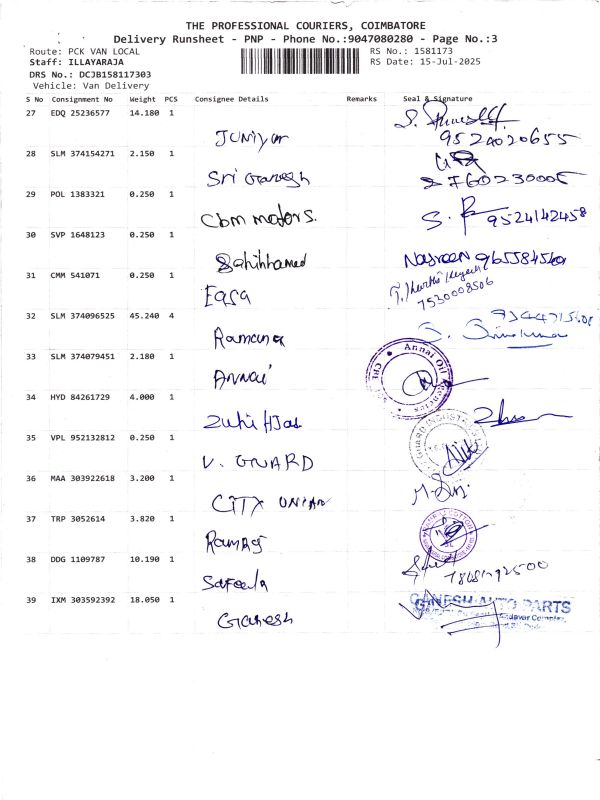 THE PROFESSIONAL COURIERS, COIMBATORE
Delivery Runsheet - PNP - Phone No.:9047080280 - Page No.:3
Route: PCK VAN LOCAL RS No.: 1581173
Staff: ILLAYARAJA RS Date: 15-Jul-2025
DRS No.: DCJB158117303
Vehicle: Van Delivery
S No Consignment No Weight PCS Consignee Details Remarks Seal & Signature
27 EDQ 25236577 14.180 1
Juniyor 9524020655
28 SLM 374154271 2.150 1
Sri Ganesh
29 POL 1383321 0.250 1
Cbm motors. 9524142458
30 SVP 1648123 0.250 1
Sahihhamed Nasreen
31 CMM 541071 0.250 1
Eqsa 7530008506
32 SLM 374096525 45.240 4
Ramana
33 SLM 374079451 2.180 1
Annai Annai Oil Agencies
34 HYD 84261729 4.000 1
Zuhi Hjas
35 VPL 952132812 0.250 1
V. GUARD
36 MAA 303922618 3.200 1
CITY UNION
37 TRP 3052614 3.820 1
Ramraj
38 DDG 1109787 10.190 1
Safeela
39 IXM 303592392 18.050 1
Ganesh GANESH AUTO PARTS